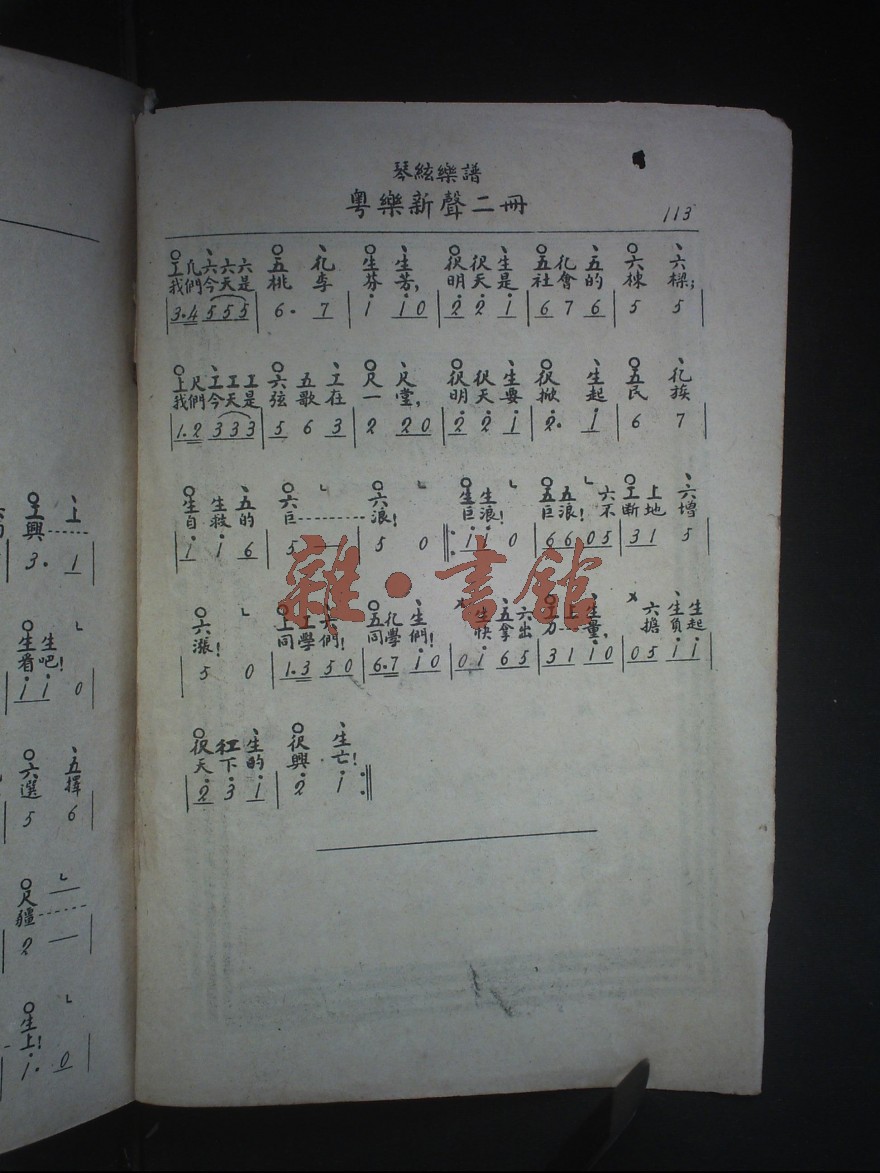 琴絃樂譜
粵樂新聲二冊
113
工凡六六六 五 𠆾 生 生 伬 伬 生 五 𠆾 五 六 六
我們今天是桃李芬芳,明天是社會的棟樑;
3.4 5 5 5 | 6. 7 | i i 0 | 2 2 i | 6 7 6 | 5 5
上尺工工工 六 五 工 尺 尺 伬 伬 生 伬 生 五
我們今天是弦歌在一堂,明天要掀起民族
1.2 3 3 3 | 5 6 3 | 2 2 0 | 2 2 i | 2. i | 6 7
生 生 五 六 六 生生 五五 六工上六
自救的巨浪!巨浪!巨浪!不斷地增
i i 6 | 5 — | 5 0 | i i 0 | 6 6 0 5 | 3 1 5
六 上工六 五 生 生五六工上生 六生生
漲!同學們!同學們!快拿出力量,擔負起
5 0 | 1.3 5 0 | 6.7 i 0 | 0 i 6 5 | 3 1 i 0 | 0 5 i i
伬 仜 生 伬 生
天下的興亡!
2 3 i | 2 i
雜·書館
王 上
興
3. 1
生 生
看吧!
i i 0
六 五
選擇
5 6
尺
疆
2 —
生
上!
i. 0